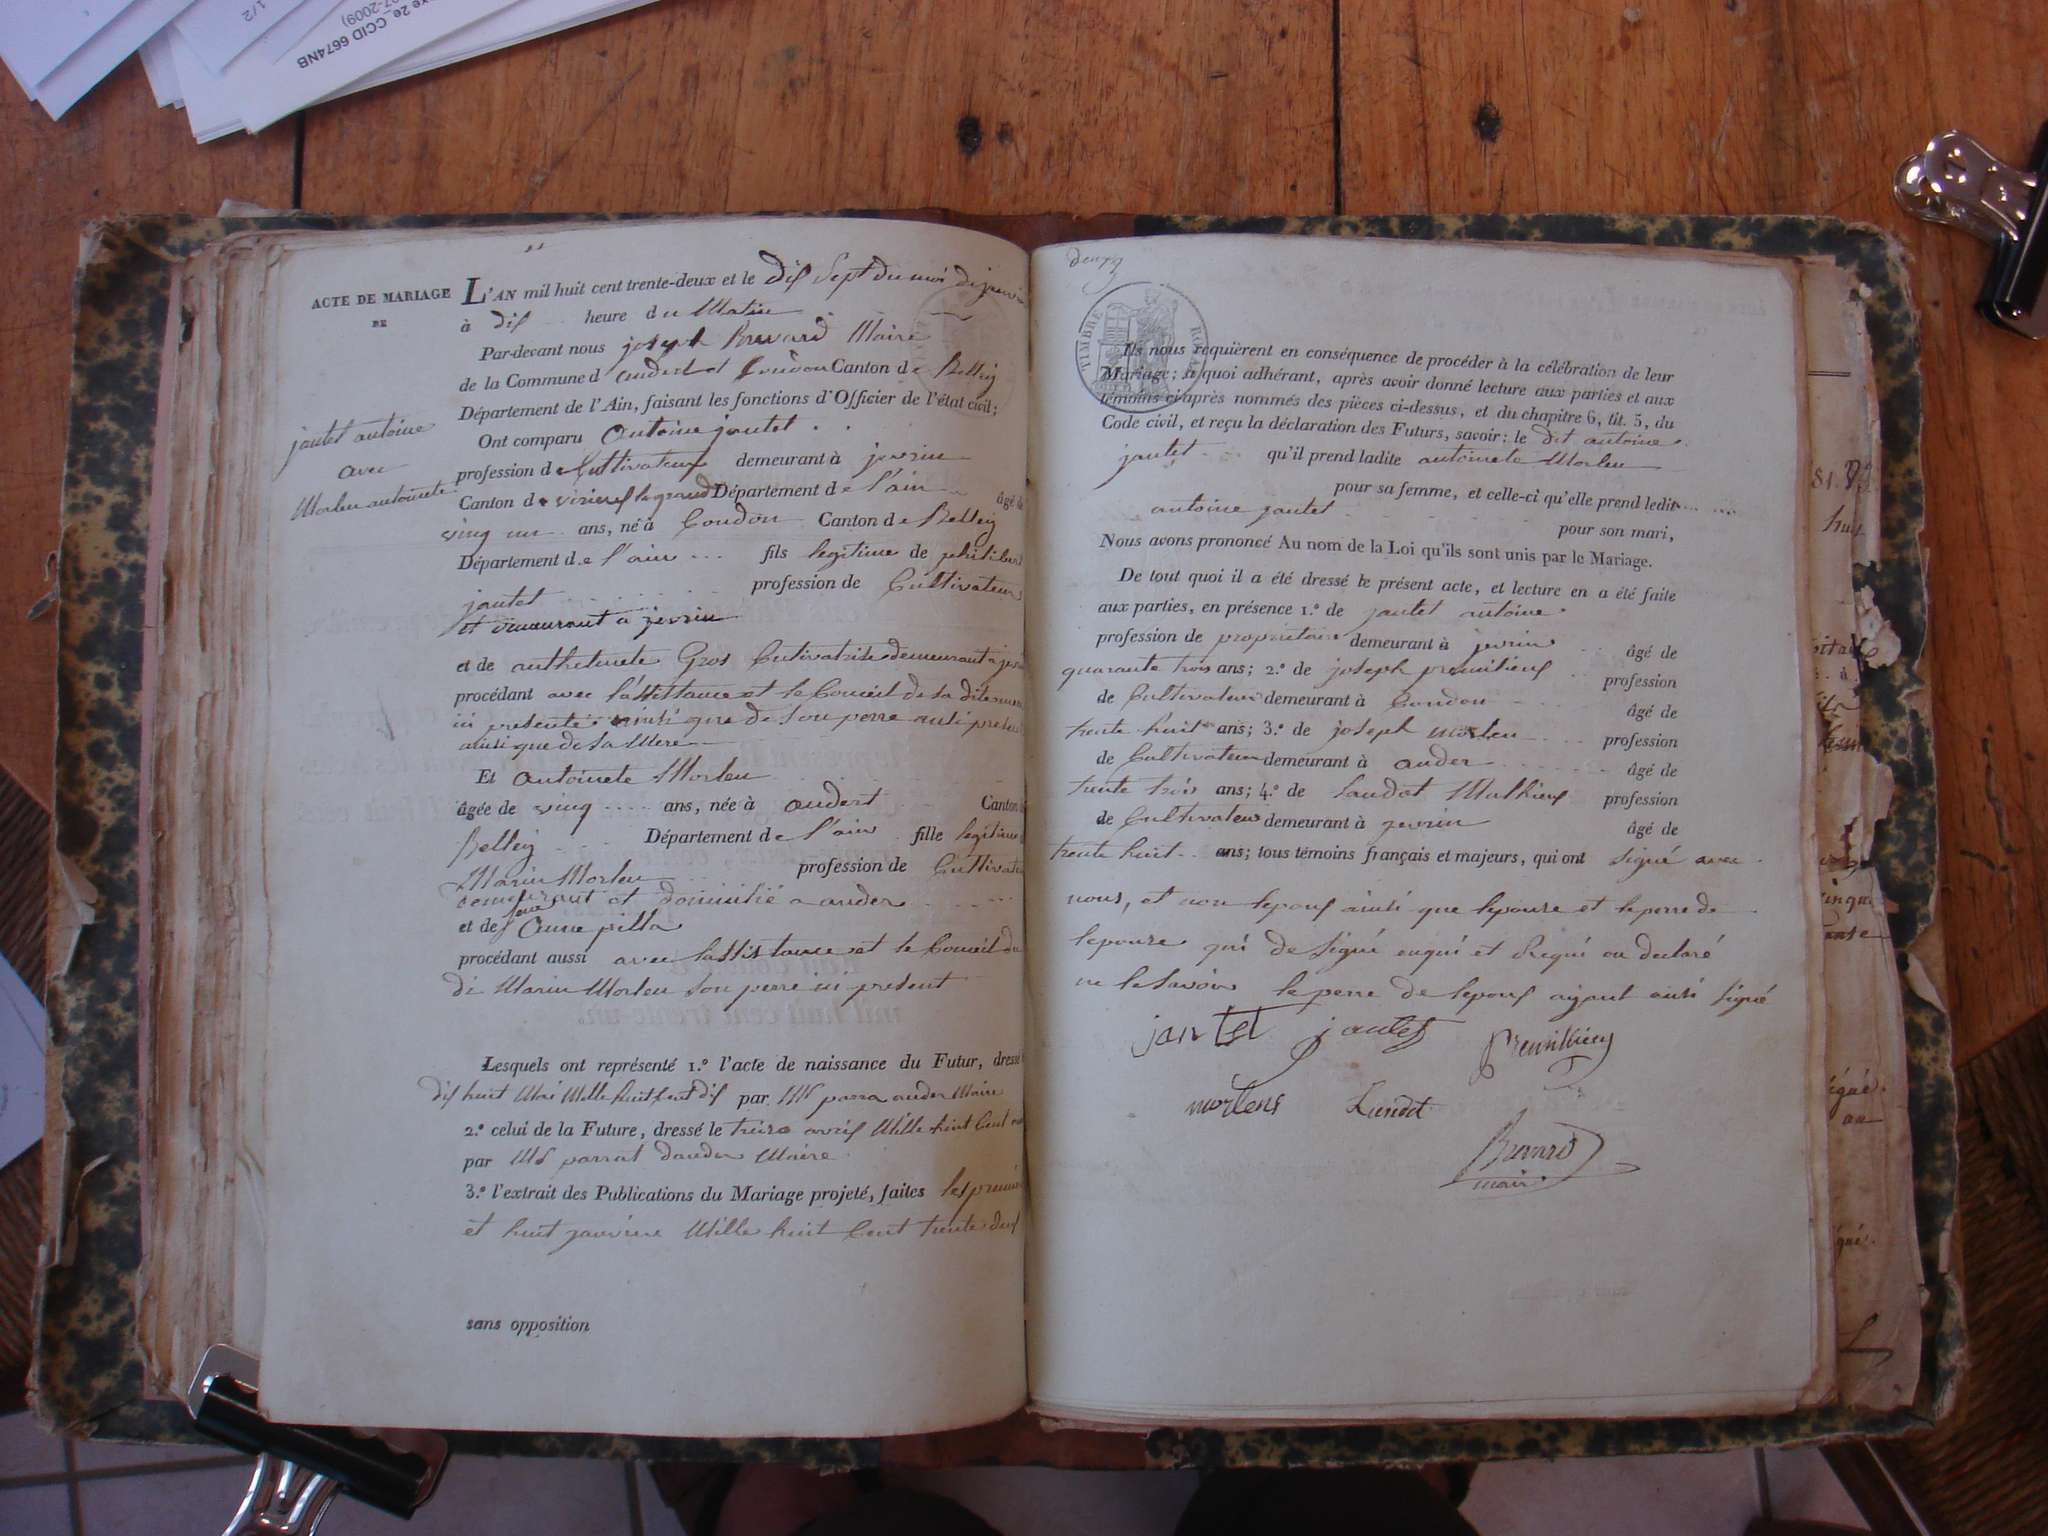 xe 2e_CCID 6674NB
07-2009)
1/2
ACTE DE MARIAGE
DE
jantet antoine
avec
Morlen antoinete
L'AN mil huit cent trente-deux et le dis sept du moi de janvie
à dis heure du Matin
Par-devant nous joseph Brevard Maire
de la Commune d'andert et Condon Canton de Belley
Département de l'Ain, faisant les fonctions d'Officier de l'état civil;
Ont comparu Antoine jantet
profession de Cultivateur demeurant à jevrin
Canton de virieux le grand Département de l'ain âgé de
ving un ans, né à Condon Canton de Belley
Département de l'ain fils legitime de philibert
jantet profession de Cultivateur
et demeurant a jevrin
et de anthelmete Gros Cultivatrise demeurant a
procédant avec l'assistance et le Conseil de sa dite mere
ici presente ainsi que de son perre ausi present
ainsi que de sa Mere
Et Antoinete Morlen
âgée de ving ans, née à andert Canton
Belley Département de l'ain fille legitime
Marin Morlen profession de Cultivateur
demeurant et domicilié a ander
et de feue Anne pilla
procédant aussi avec l'assistance et le Conseil du
di Marin Morlen son perre ici present
Lesquels ont représenté 1.º l'acte de naissance du Futur, dressé
dis huit Mai Mille huit Cent dis par Mr parra ander Maire
2.º celui de la Future, dressé le treize avril Mille huit Cent
par Mr parrat dander Maire
3.º l'extrait des Publications du Mariage projeté, faites les premier
et huit janviere Mille huit Cent trente deux
sans opposition
TIMBRE ROYAL
Ils nous requièrent en conséquence de procéder à la célébration de leur
Mariage; à quoi adhérant, après avoir donné lecture aux parties et aux
témoins ci-après nommés des pièces ci-dessus, et du chapitre 6, tit. 5, du
Code civil, et reçu la déclaration des Futurs, savoir: le dit antoine
jantet qu'il prend ladite antoinete Morlen
pour sa femme, et celle-ci qu'elle prend ledit
antoine jantet
pour son mari,
Nous avons prononcé Au nom de la Loi qu'ils sont unis par le Mariage.
De tout quoi il a été dressé le présent acte, et lecture en a été faite
aux parties, en présence 1.º de jantet antoine
profession de propriétaire demeurant à jevrin âgé de
quarante trois ans; 2.º de joseph premilieux profession
de Cultivateur demeurant à Condon âgé de
trente huit ans; 3.º de joseph morlen profession
de Cultivateur demeurant à ander âgé de
trente trois ans; 4.º de Landot Mathieux profession
de Cultivateur demeurant à jevrin âgé de
trente huit ans; tous témoins français et majeurs, qui ont signé avec
nous, et non lepoux ainsi que lepouse et le perre de
lepouse qui de signé enquis et Requi on declaré
ne le savoir le perre de lepoux ayant ausi signé
jantet jantet premillieu
morlens Landot
Brevard
maire